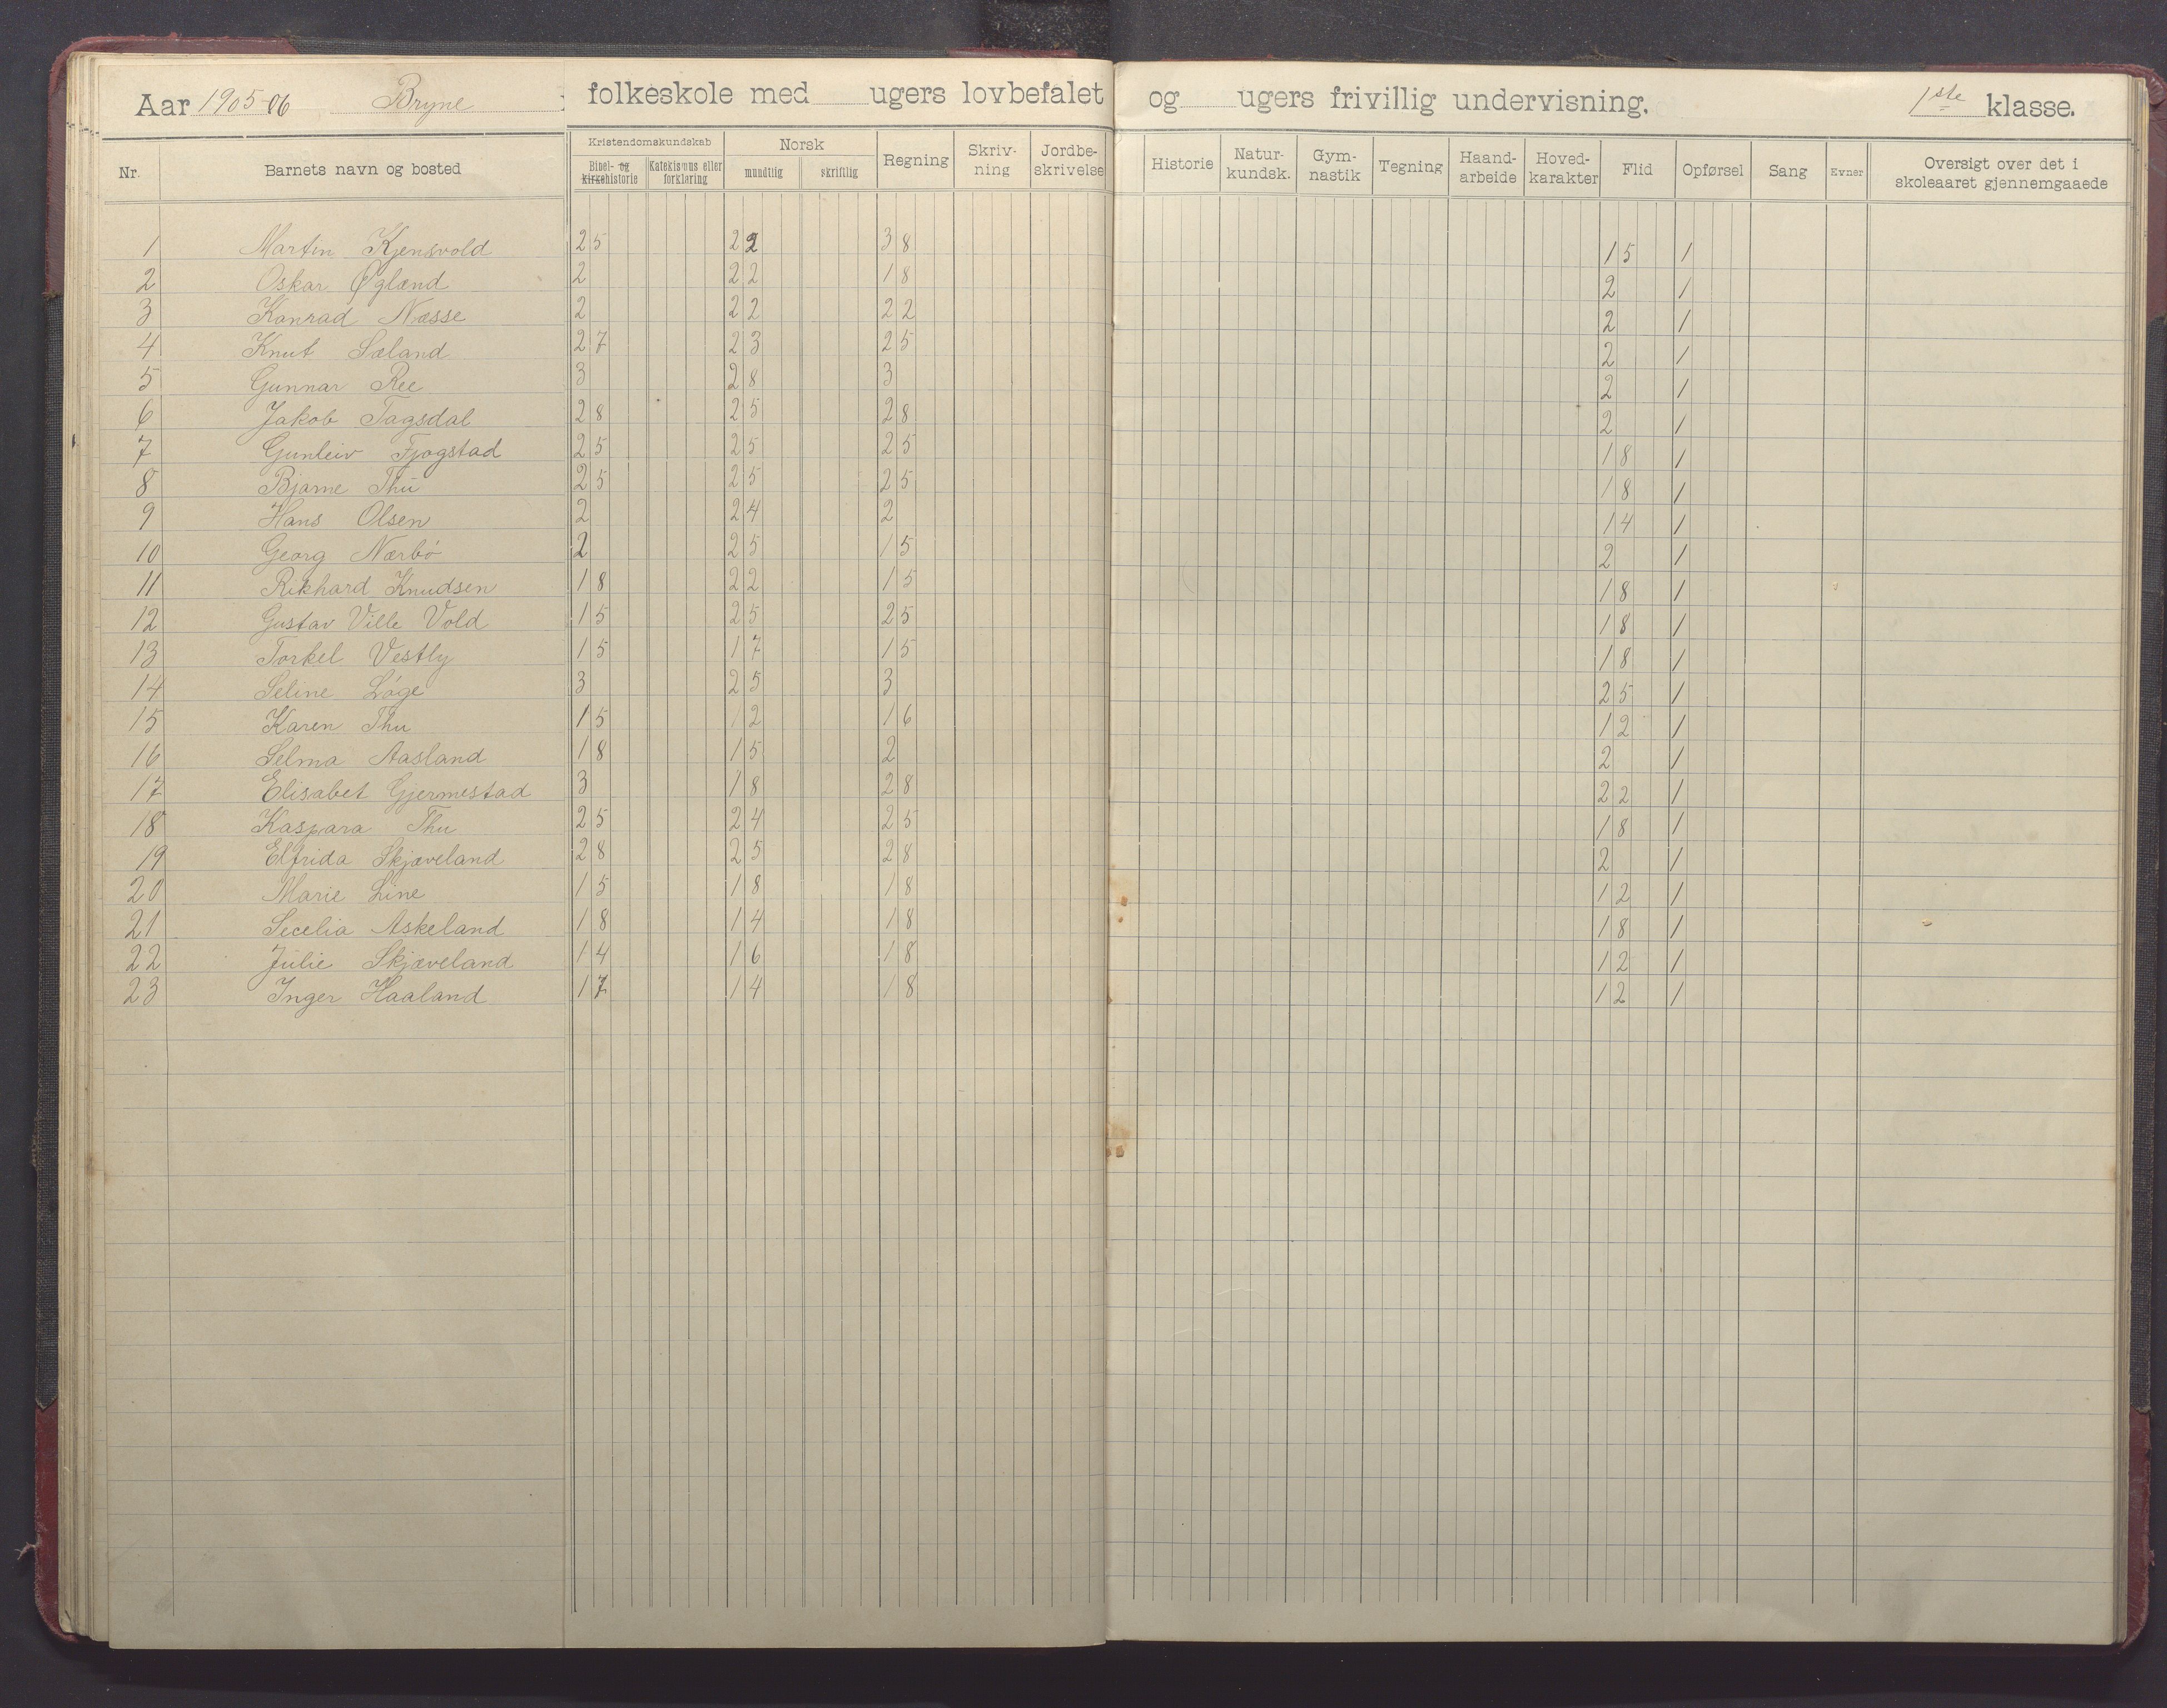 Aar 1905-06 Bryne folkeskole med ugers lovbefalet og ugers frivillig undervisning. 1ste klasse.
Nr. Barnets navn og bosted Kristendomskundskab Norsk Regning Skriv-ning Jordbe-skrivelse Historie Natur-kundsk. Gym-nastik Tegning Haand-arbeide Hoved-karakter Flid Opførsel Sang Evner Oversigt over det i skoleaaret gjennemgaaede
Bibel- og kirkehistorie Katekismus eller forklaring mundtlig skriftlig
1 Martin Kjensvold 25 22 38 15 1
2 Oskar Øglænd 2 22 18 2 1
3 Konrad Næsse 2 22 22 2 1
4 Knut Sæland 27 23 25 2 1
5 Gunnar Ree 3 28 3 2 1
6 Jakob Tagsdal 28 25 28 2 1
7 Gunleiv Fjogstad 25 25 25 18 1
8 Bjarne Thu 25 25 25 18 1
9 Hans Olsen 2 24 2 14 1
10 Georg Nærbö 2 25 15 2 1
11 Rikhard Knudsen 18 22 15 18 1
12 Gustav Ville Vold 15 25 25 18 1
13 Torkel Vestly 15 17 15 18 1
14 Seline Löge 3 25 3 25 1
15 Karen Thu 15 12 16 12 1
16 Selma Aasland 18 15 2 2 1
17 Elisabet Gjermestad 3 18 28 22 1
18 Kaspara Thu 25 24 25 18 1
19 Elfrida Skjæveland 28 25 28 2 1
20 Marie Line 15 18 18 12 1
21 Secelia Askeland 18 14 18 18 1
22 Julie Skjæveland 14 16 18 12 1
23 Inger Haaland 17 14 18 12 1